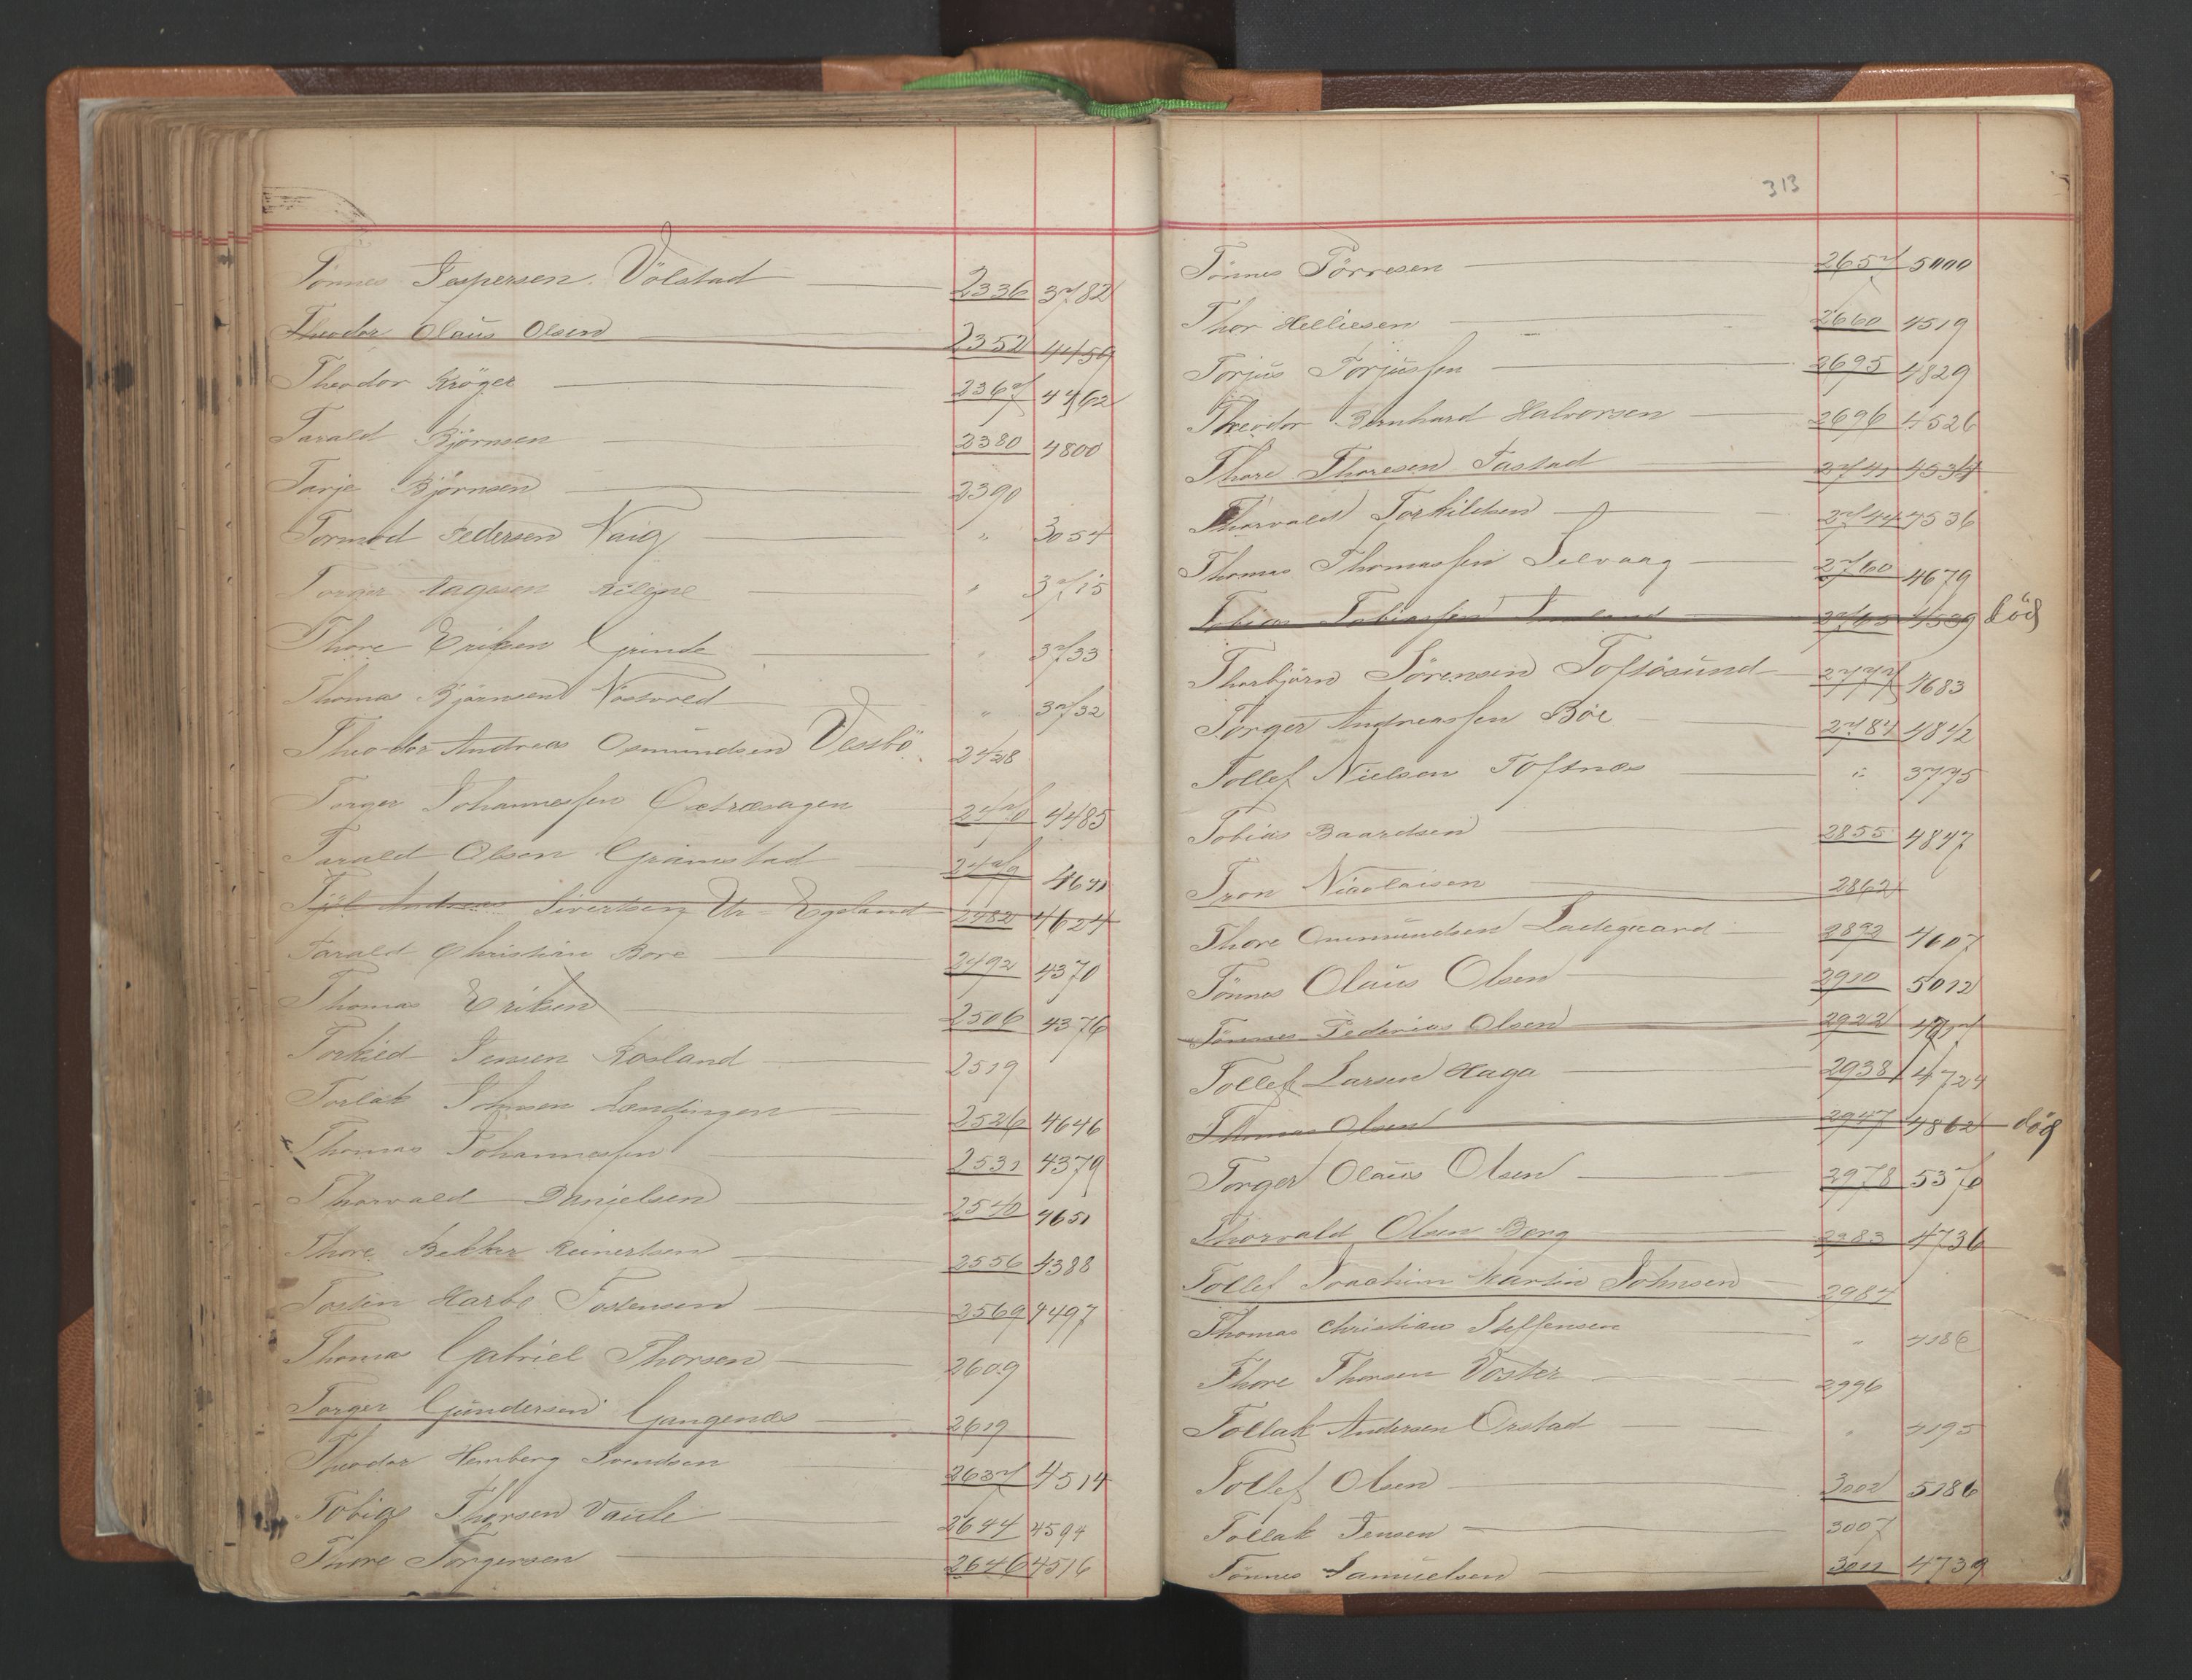 Tønnes Jespersen Völstad 2336 3782
Theodor Olaus Olsen 2352 4459
Theodor Kröger 2367 4462
Tarald Bjørnsen 2380 4800
Tarje Bjørnsen 2390
Tormod Pedersen Varig " 3054
Torger Aagesen " 3715
Thore Eriksen Grinde " 3733
Thomas Bjørnsen Nostvold " 3732
Theodor Andreas Osmundsen Vestbö 2428
Torger Johannessen 2470 4485
Tarald Olsen Gramstad 2479
Andreas Sivertsen Ur=Egeland 2482 4624
Tarald Christian Bore 2492 4370
Thomas Eriksen 2506 4376
Torkild Jensen Rosland 2519
Torlak Johnsen Landingen 2526 4646
Thomas Johannessen 2531 4379
Thorvald Danielsen 2540 4651
Thore Bekker Reinertsen 2556 4388
Tosten Harbo Tostensen 2569 4497
Thomas Gabriel Thorsen 2609
Torger Gundersen Gangenæs 2619
Theodor Hemberg Svendsen 2637 4514
Tobias Thorsen Vaule 2644 4594
Thore Torgersen 2646 4516
313
Tönnes Törresen 2657 5000
Thor Helliesen 2660 4519
Torjus Torjussen 2695 4829
Theodor Bernhard Halvorsen 2696 4526
Thore Thoresen Tastad 2741 4534
Thorvald Torkildsen 2744 4536
Thomas Thomassen Selvaag 2760 4679
Tobias Tobiassen 2765 4539 död
Thorbjörn Sörensen Toftösund 2777 4683
Torger Andreassen Böe 2784 4842
Tollef Nielsen Toftnes " 3775
Tobias Baardsen 2855 4847
Tron Nicolaisen 2862
Thore Ommundsen Ladegaard 2892 4607
Tönnes Olaus Olsen 2910 5012
Tönnes Pedersen Olsen 2922
Tollef Larsen Haga 2938 4724
Thomas Olsen 2947 4862 död
Torger Olaus Olsen 2978 5370
Thorvald Olsen Berg 2983 4736
Tollef Joachim Martin Johnsen 2984
Thomas Christian Steffensen " 4186
Thore Thorsen Voster 2996
Tollak Andersen Orstad " 4195
Tollef Olsen 3002 5286
Tollak Jensen 3007
Tönnes Samuelsen 3011 4739